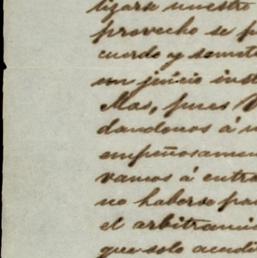 ligarse nuestro
provecho se p
cuerdo y somet
un juicio inst
Mas, pues V
dandonos á n
empeñosamen
vamos á entra
no haberse pa
el arbitrami
que solo acudi